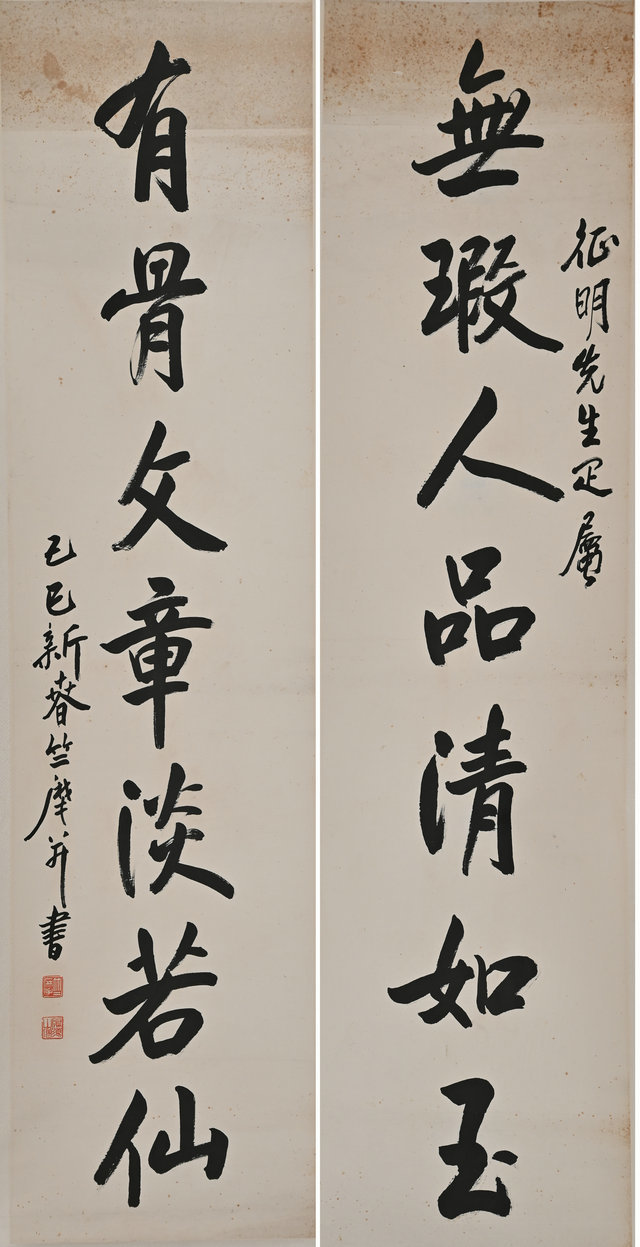 征明先生疋屬
無瑕人品清如玉
有骨文章淡若仙
己巳新春竺摩并書